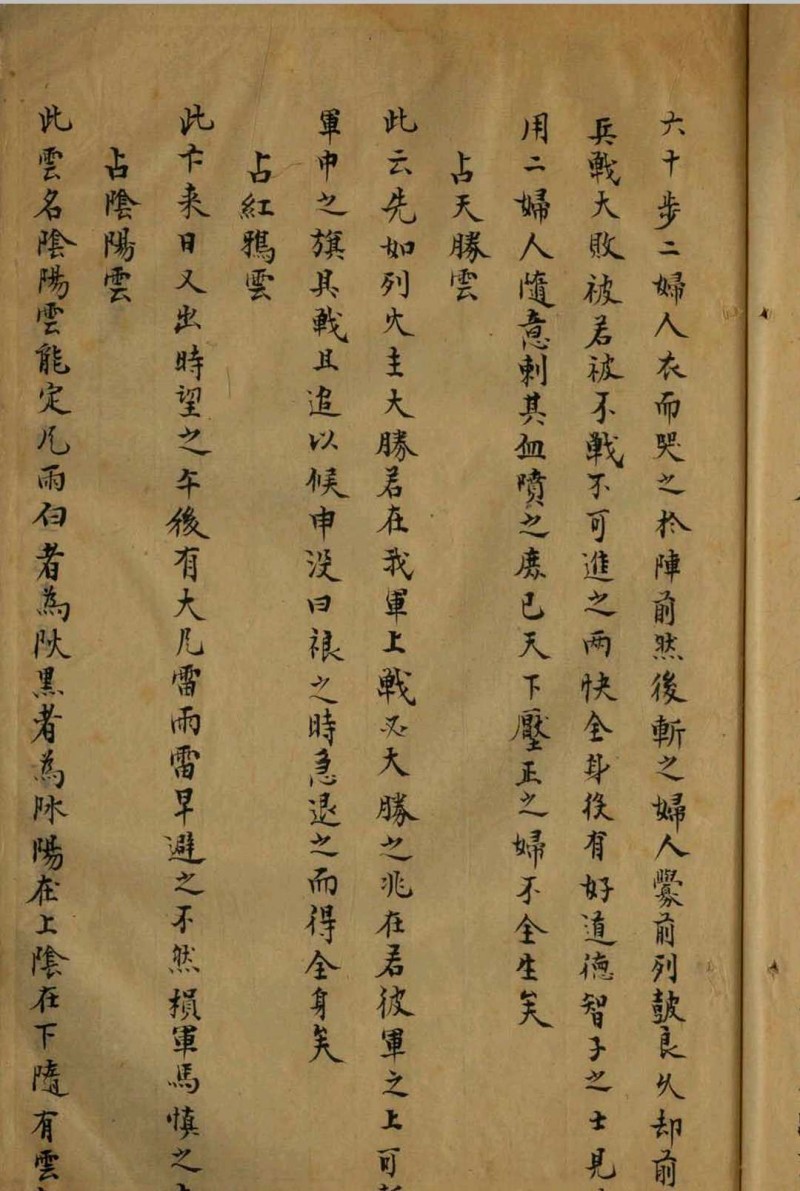 六十步二婦人衣而哭之於陣前然後斬之婦人釁前列鼓良久却前
兵戰大敗被若被不戰不可進之兩快全身後有好道德智子之士見
用二婦人隨意刺其血噴之處已天下壓正之婦不全生矣
占天勝雲
此云先如列火主大勝若在我軍上戰必大勝之兆在若彼軍之上可
軍中之旗具戰且追以候申没曰裉之時急退之而得全身矣
占紅鴉雲
此卞来日又出時望之午後有大凡雷雨雷早避之不然損軍馬慎之
占陰陽雲
此雲名陰陽雲能定凡雨白者為阦黑者為阥陽在上陰在下隨有雲